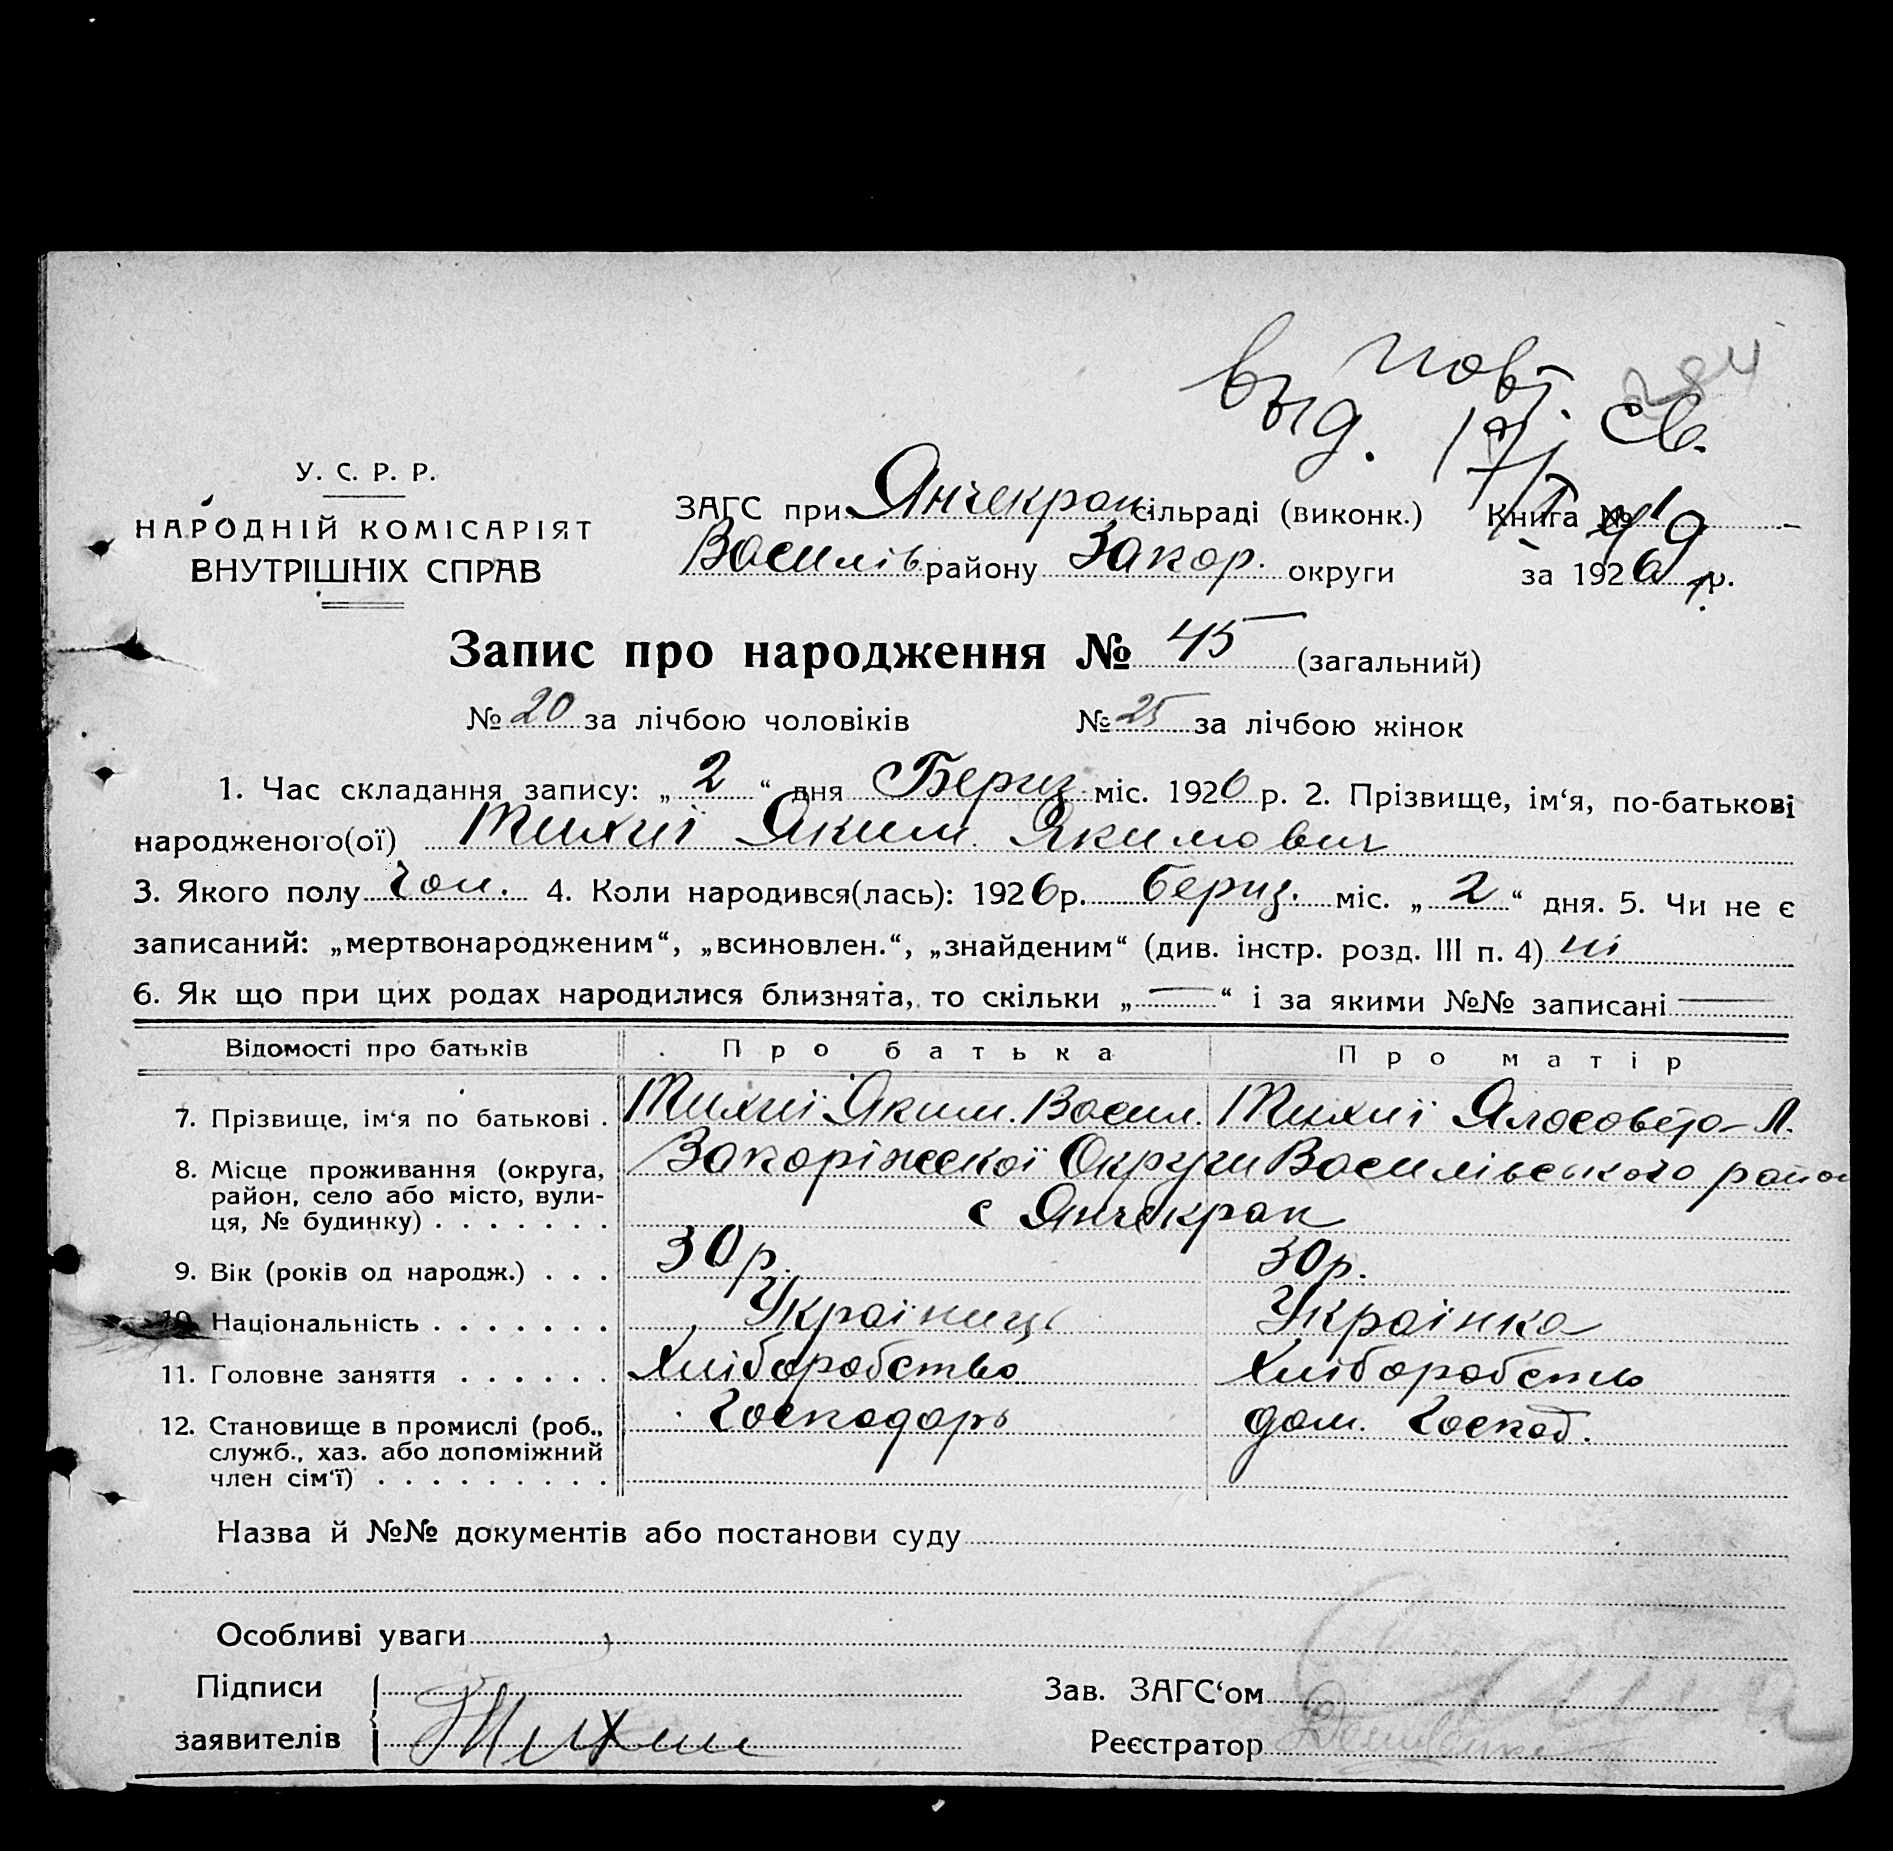 284
выд. повт. св.
17/I
У. С. Р. Р.
НАРОДНІЙ КОМІСАРІЯТ
ВНУТРІШНІХ СПРАВ
ЗАГС при Янчекрак сільраді (виконк.) Книга №
Василів району Запор. округи за 1926 р.
Запис про народження № 45 (загальний)
№ 20 за лічбою чоловіків № 25 за лічбою жінок
1. Час складання запису: „ 2 “ дня Бериз. міс. 1926 р. 2. Прізвище, ім‘я, по-батькові
народженого(ої) Тихиї Яким Якимович
3. Якого полу Чол. 4. Коли народився(лась): 1926 р. бериз. міс. „ 2 “ дня. 5. Чи не є
записаний: „мертвонародженим“, „всиновлен.“, „знайденим“ (див. інстр. розд. III п. 4) ні
6. Як що при цих родах народилися близнята, то скільки „ — “ і за якими №№ записані —
Відомості про батьків Про батька Про матір
7. Прізвище, ім‘я по батькові . Тихиї Яким. Васил. Тихиї Ялосовета Л.
8. Місце проживання (округа, район, село або місто, вулиця, № будинку) . . . . . . . Запоріжської Округи Василівського район
с Янчекрак
9. Вік (років од народж.) . . . 30 р. 30 р.
10. Національність . . . . . . . Україниць Українка
11. Головне заняття . . . . . . Хліборобство Хліборобство
12. Становище в промислі (роб., служб., хаз. або допоміжний член сім‘ї) . . . . . . . . . Господарь дом. Господ.
Назва й №№ документів або постанови суду
Особливі уваги
Підписи
заявителів Тихии
Зав. ЗАГС‘ом
Реєстратор